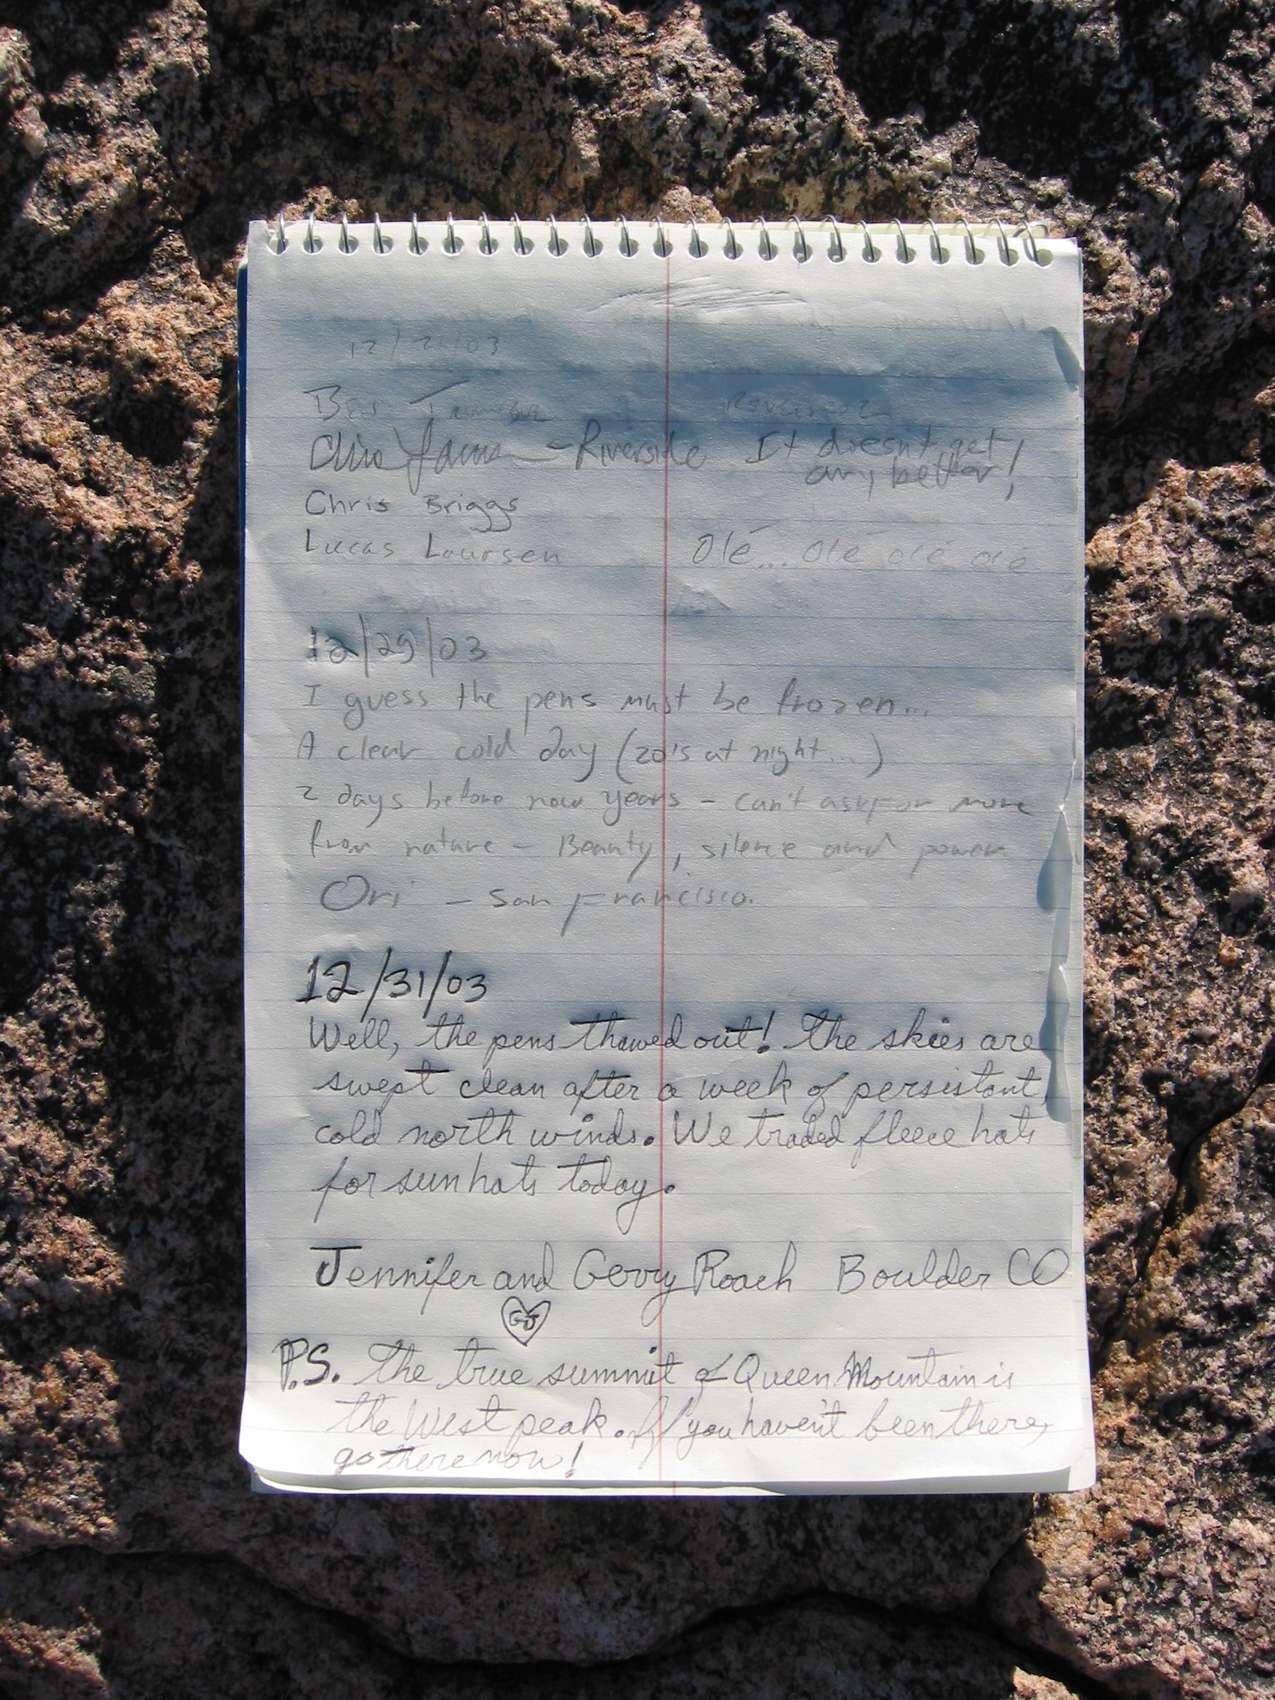 Riverside It doesn't get
any better!
Chris Briggs
Lucas Laursen Olé... Olé olé olé
12/29/03
I guess the pens must be frozen...
A clear cold day (20's at night...)
2 days before new years - can't ask for more
from nature - Beauty, silence and power
Ori - San Francisco.
12/31/03
Well, the pens thawed out! The skies are
swept clean after a week of persistant,
cold north winds. We traded fleece hats
for sunhats today.
Jennifer and Gerry Roach Boulder CO
GJ
P.S. The true summit of Queen Mountain is
the West peak. If you haven't been there,
go there now!